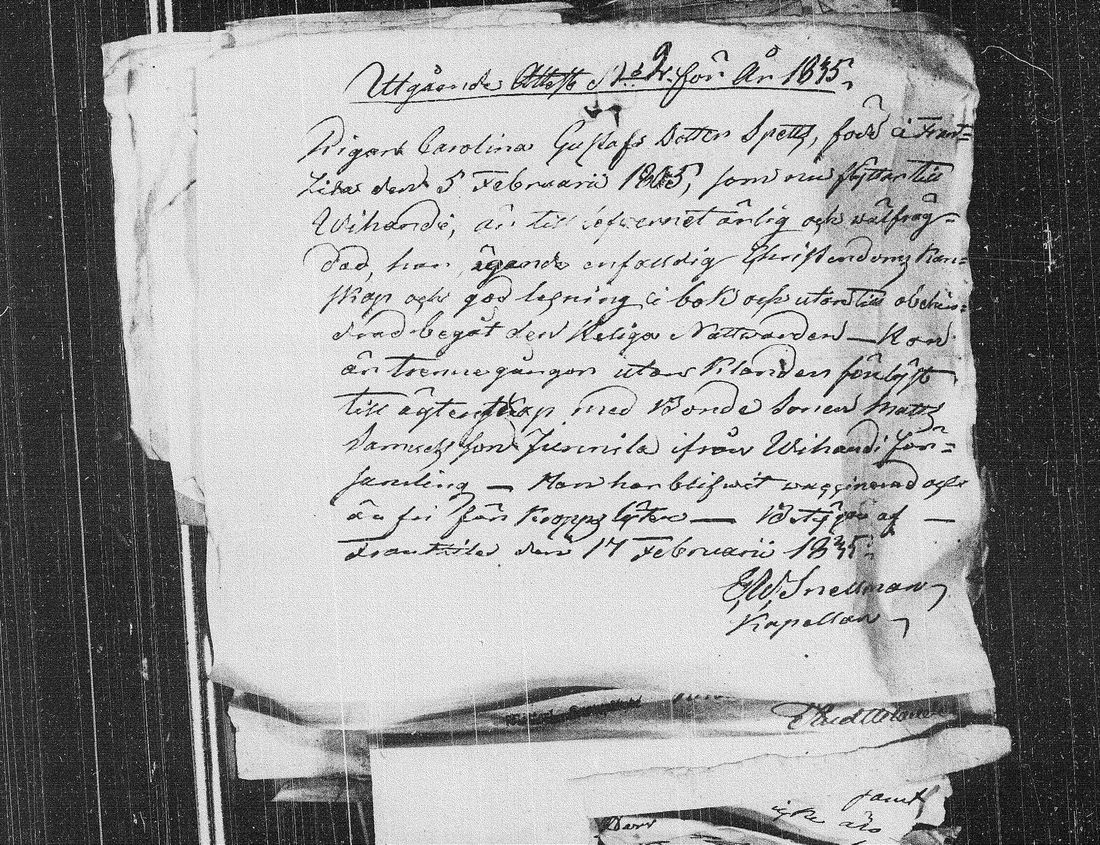 Utgående Attest No 2. för År 1835.
Pigan Carolina Gustafs Dotter Spetts, född i Frant=
zila den 5 Februarii 1815, som nu flyttar till
Wihandi, är till lefwernet ärlig och wälfräg=
dad, har ägande enfalldig Christendoms Kun=
skap och god läsning i bok och utantill obehin=
drad begåt den Heliga Nattwarden — Hon
är trenne gångor utan Klander förlyst
till äktenskap med Bonde Sonen Matts
Samuels Son Junnila ifrån Wihandi För=
samling — Hon har blifwit waccinerad och
är fri från Kropps lyten — Betygar af —
Frantsila den 17 Februarii 1835.
E. W. Snellman
Kapellan
samt
icke
Dess